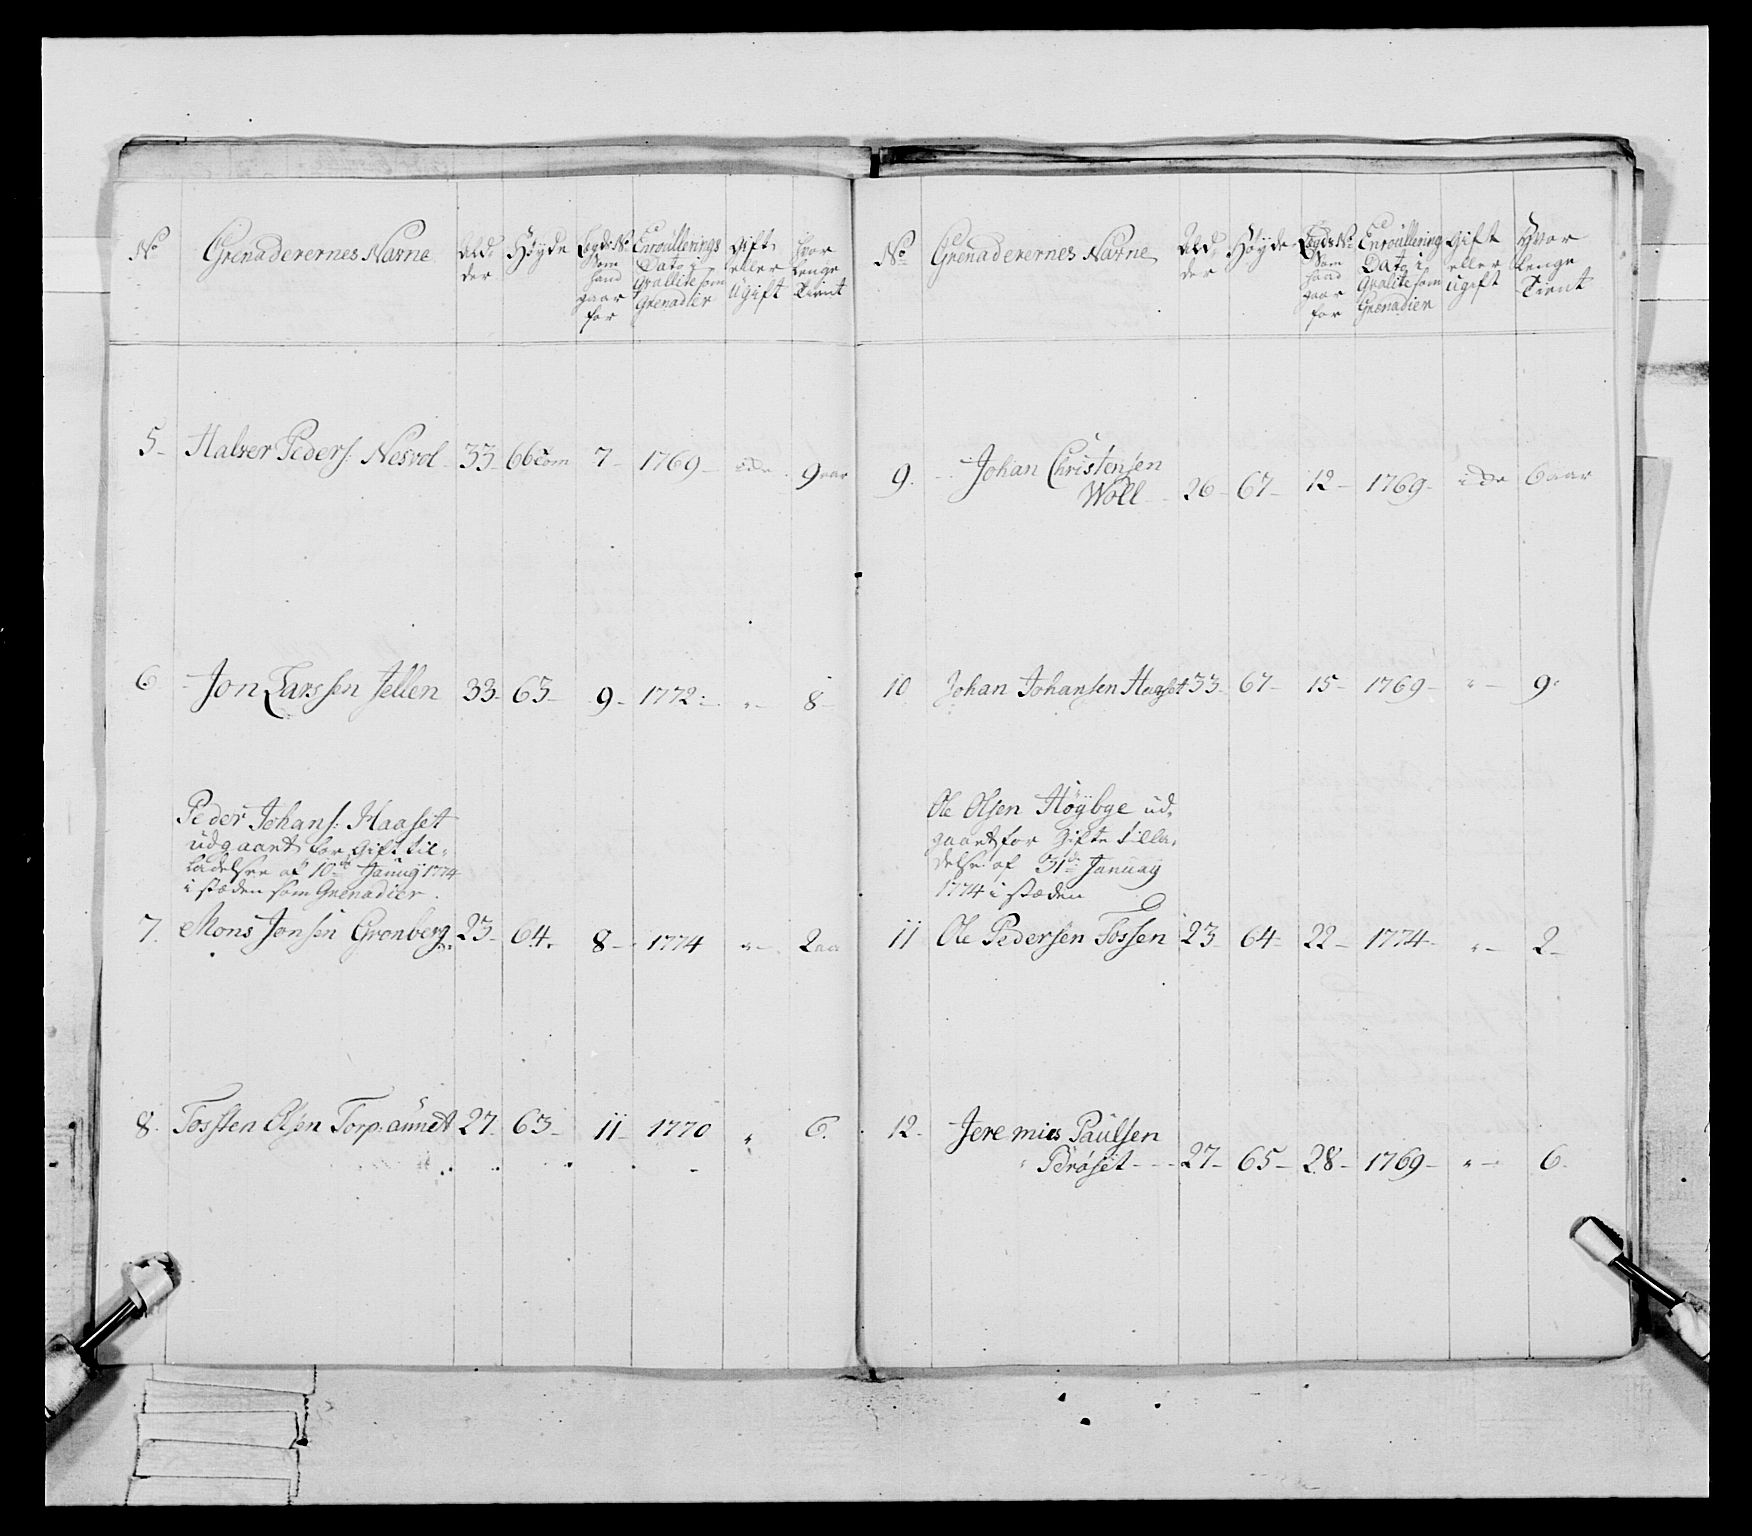 No Grenaderernes Navne Ald, der Höyde Legds No Som hand gaar for Enroullerings Dato i Qvallite som Grenadier gift eller Ugift hvor lenge Tient
5 - Halver Peders: Nesvol 33 - 66 Tom 7 - 1769 - 9 aar
6 - Jon Larssen Jellen 33 - 63 - 9 - 1772 - " - 8 -
Peder Johans: Haaset
udgaaet for gift til,
ladelse af 10de Janny 1774
i stæden som Grenadier
7. Mons Jonsen Gronberg 23 - 64. 8 - 1774 " - 2 aa
8. Tosten Olsen Torp: aunet 27 - 63 - 11 - 1770 " 6.
No Grenaderernes Navne Ald, der Höyde Legds No Som hand gaar for Enroullering Dato i Qvalite som Grenadier gift eller ugift Hvor lenge Tient
9. Johan Christensen
Woll - 26 - 67 - 12 - 1769 - i do 6 aar
10 Johan Johansen Haaset 33 - 67 - 15 - 1769 - " - 9
Ole Olsen Höybye ud,
gaaet for gifte tilla,
delse af 31de January
1774 i stæden
11 Ole Pedersen Fossen 23 - 64 - 22 - 1774 - " - 2 -
12. Jeremias Paulsen
Peröset - - - 27 - 65 - 28 - 1769 - " - 6